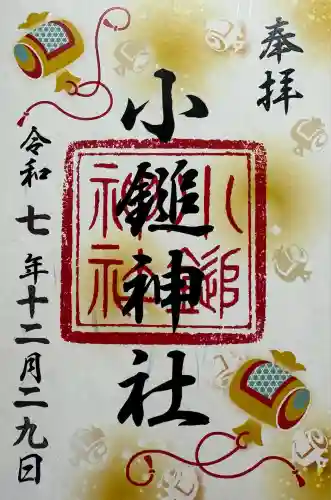 奉拝
小鎚神社
小鎚神社
令和七年十二月二九日